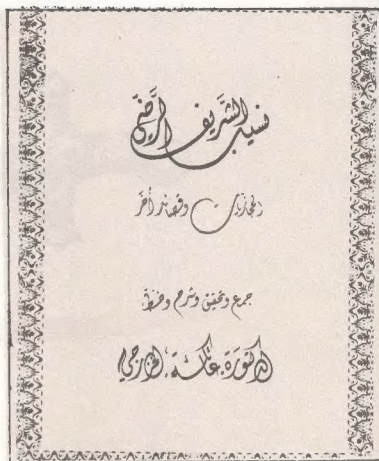 نسيب الشَّريف الرَّضيّ
الحجازيات وقصائد أخر
جمع وتحقيق وشرح وضبط:
الدكتورة عاتكة الخزرجي